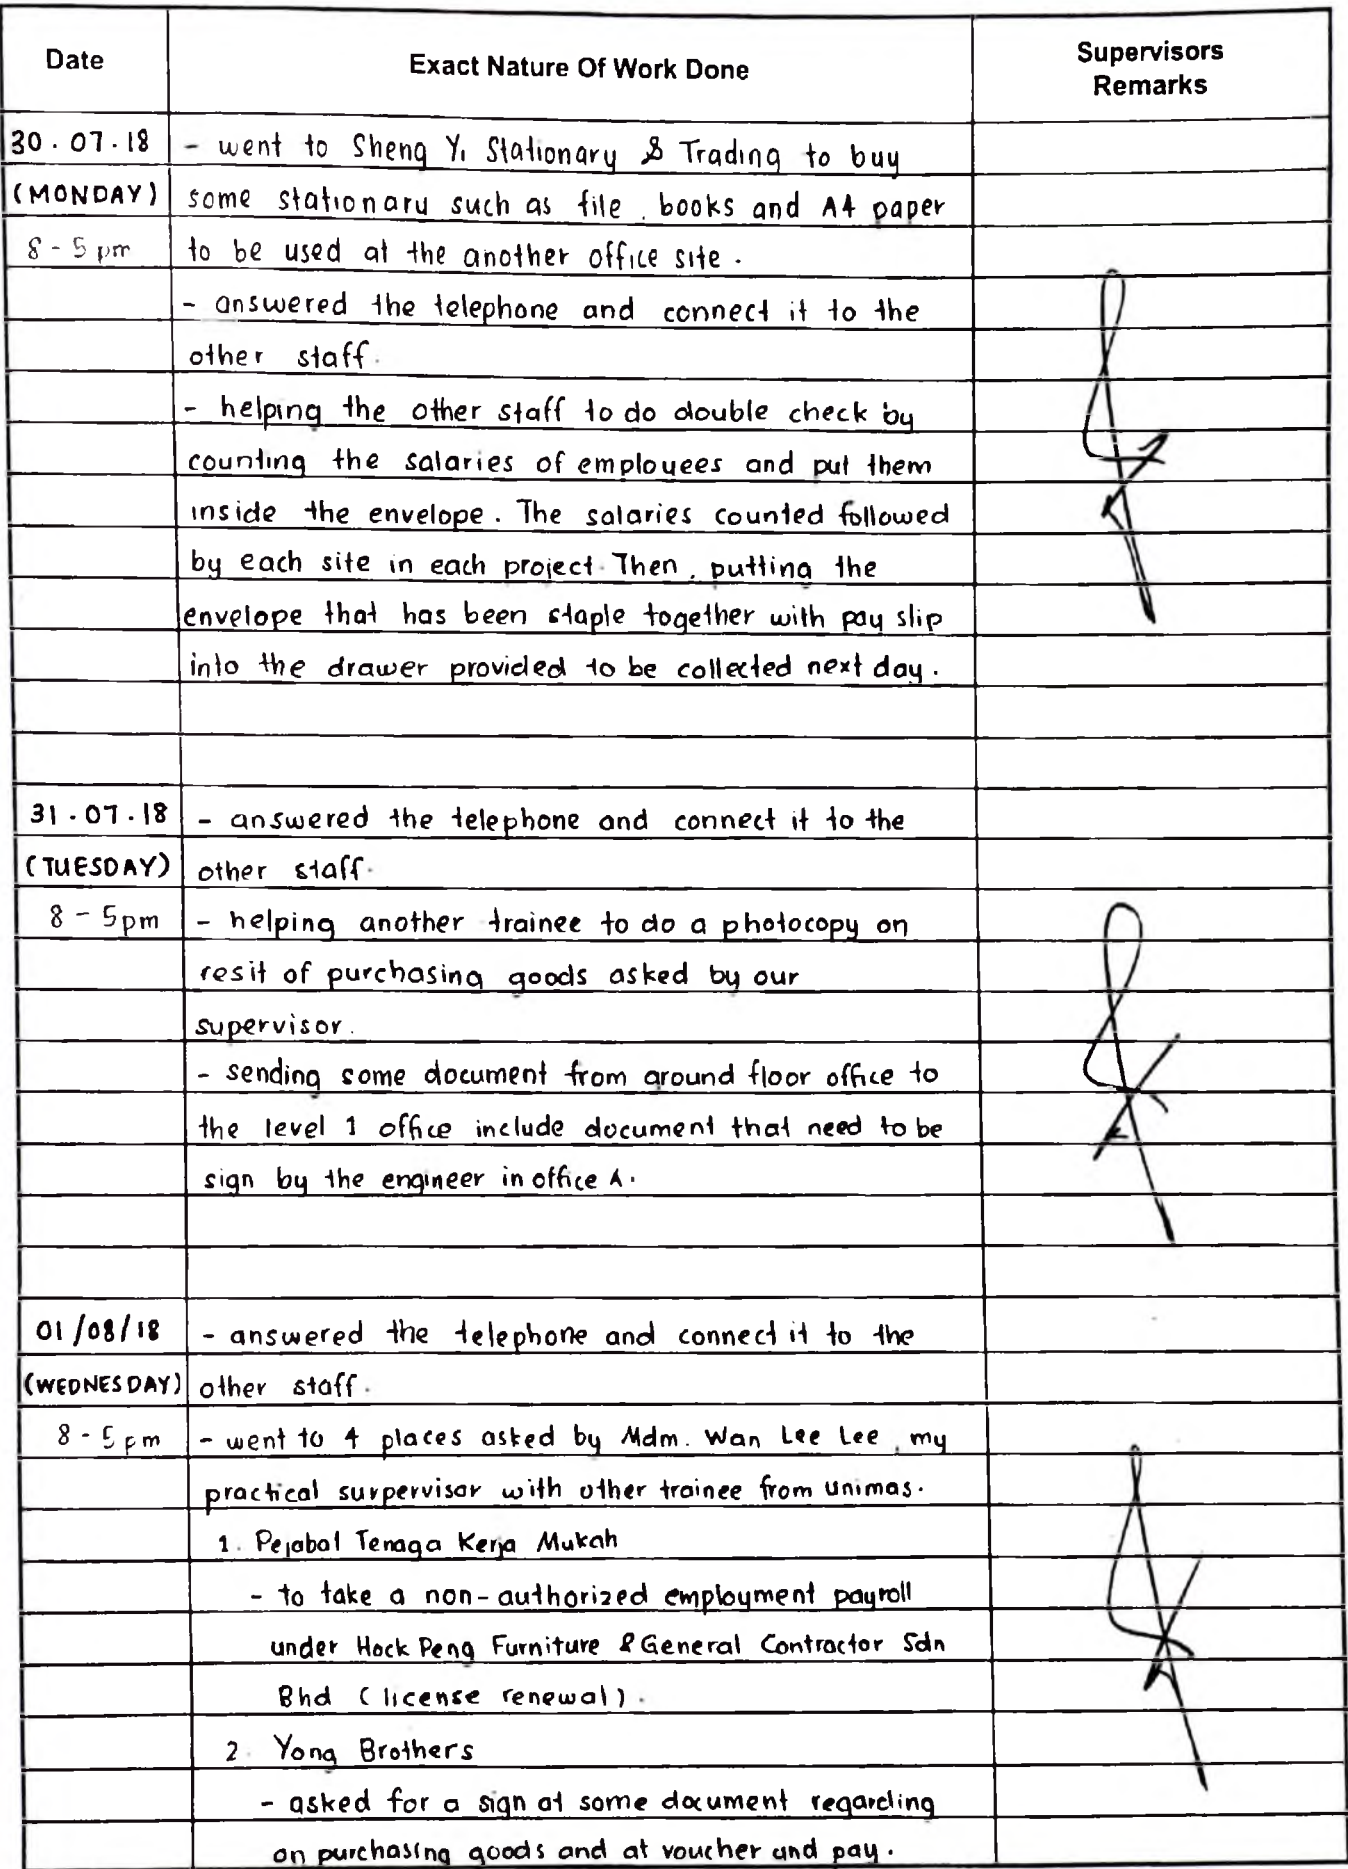 Date Exact Nature Of Work Done Supervisors Remarks
30.07.18 - went to Sheng Yi Stationary & Trading to buy
(MONDAY) some stationary such as file, books and A4 paper
8 - 5 pm to be used at the another office site.
- answered the telephone and connect it to the
other staff.
- helping the other staff to do double check by
counting the salaries of employees and put them
inside the envelope. The salaries counted followed
by each site in each project. Then, putting the
envelope that has been staple together with pay slip
into the drawer provided to be collected next day.
31.07.18 - answered the telephone and connect it to the
(TUESDAY) other staff.
8 - 5pm - helping another trainee to do a photocopy on
resit of purchasing goods asked by our
supervisor.
- sending some document from ground floor office to
the level 1 office include document that need to be
sign by the engineer in office A.
01/08/18 - answered the telephone and connect it to the
(WEDNESDAY) other staff.
8 - 5 pm - went to 4 places asked by Mdm. Wan Lee Lee, my
practical surpervisor with other trainee from unimas.
1. Pejabat Tenaga Kerja Mukah
- to take a non-authorized employment payroll
under Hock Peng Furniture & General Contractor Sdn
Bhd (license renewal).
2. Yong Brothers
- asked for a sign at some document regarding
on purchasing goods and at voucher and pay.